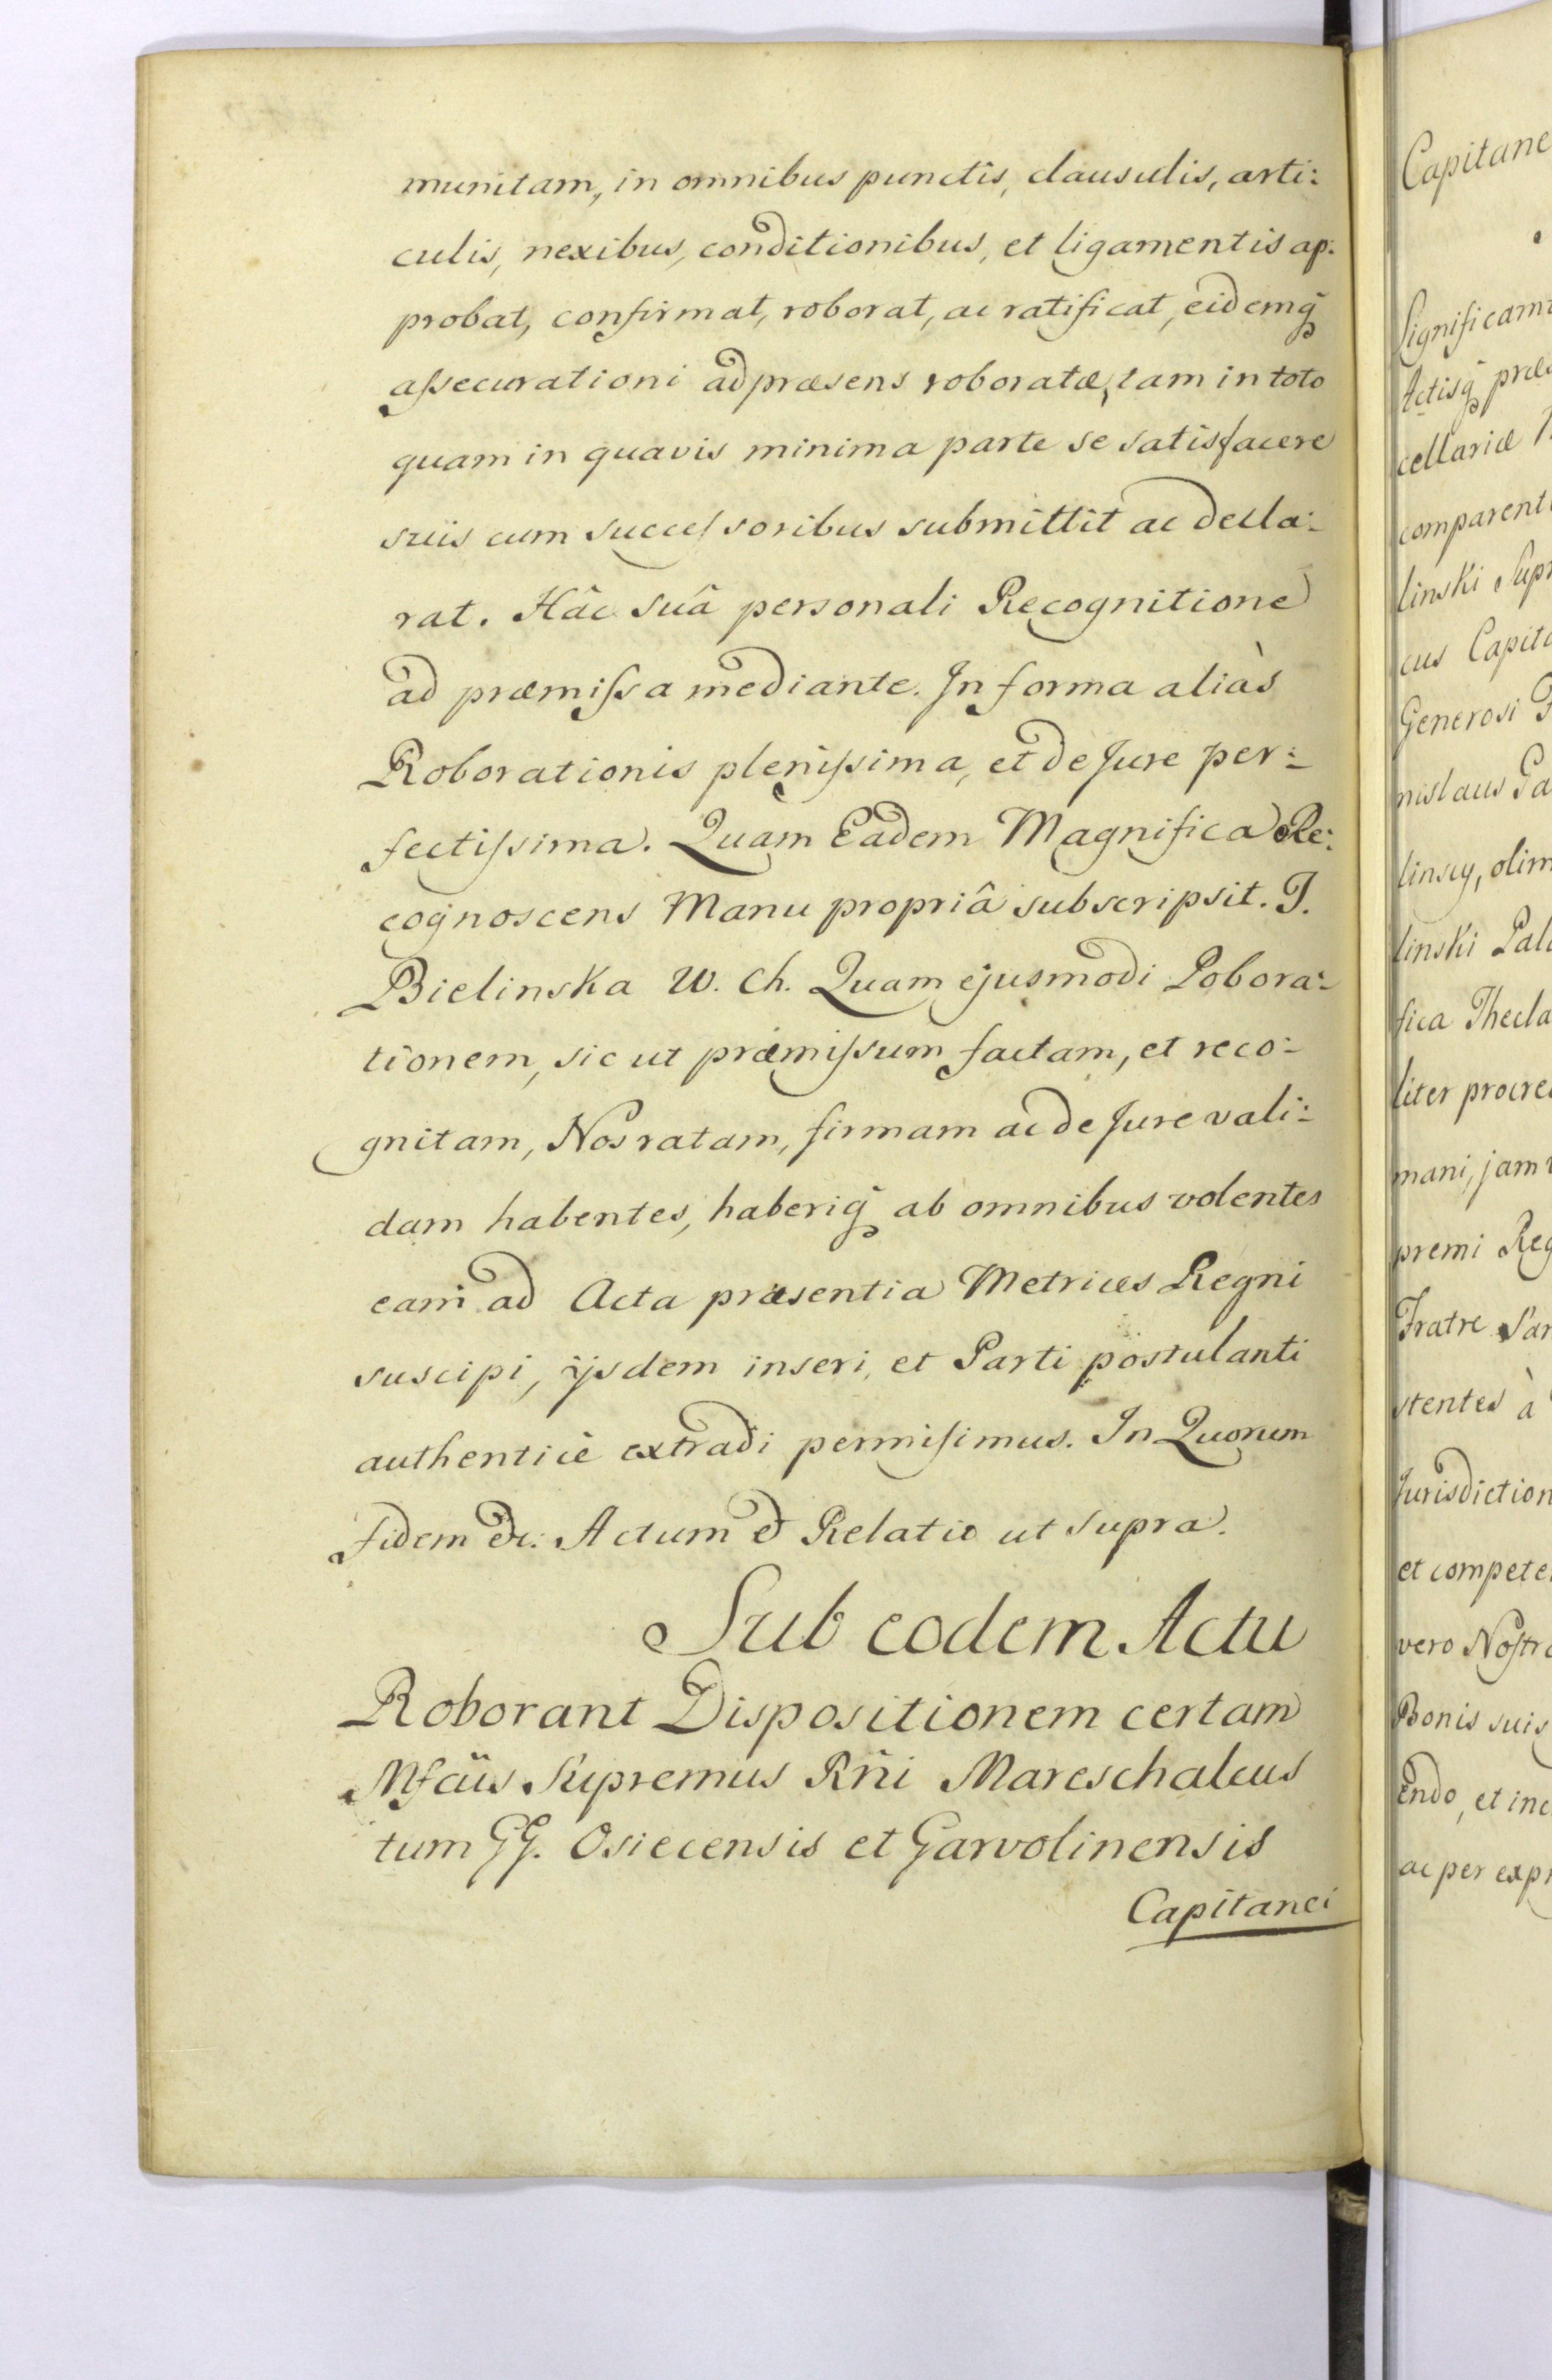 munitam, in omnibus punctis, clausulis, arti:
culis, nexibus, conditionibus, et ligamentis ap:
probat, confirmat, roborat, ac ratificat, eidemq̃
aſsecurationi ad præsens roboratæ, tam in toto
quam in quavis minima parte se satisfacere
suis cum succeſsoribus submittit ac decla:
rat. Hâc suâ personali Recognitione
ad præmiſsa mediante. In forma aliàs
Roborationis pleniſsima, et de Jure per:
fectiſsima. Quam Eadem Magnifica Re:
cognoscens Manu propriâ subscripsit. T.
Bielinska W. Ch. Quam ejusmodi Robora:
tionem, sic ut præmiſsum factam, et reco:
gnitam, Nos ratam, firmam ac de Jure vali:
dam habentes, haberiq̃ ab omnibus volentes
eam ad Acta præsentia Metrices Regni
suscipi, ijsdem inseri, et Parti postulanti
authenticè extradi permiſimus. In Quorum
Fidem &c. Actum & Relatio ut supra.
Sub eodem Actu
Roborant Dispositionem certam
Mfcus Supremus Rñi Mareschalcus
tum GG. Osiecensis et Garvolinensis
Capitanei
Capitane
Significam
Actisq̃ præ
cellariæ
comparent
linski Sup
cus Capit
Generosi
nislaus Ga
linscy, olim
linski Pal
fica Thecla
liter procre
mani, jam
premi Reg
Fratre
stentes à
Jurisdiction
et compete
vero Noſtr
Bonis suis
endo, et inc
ac per exp